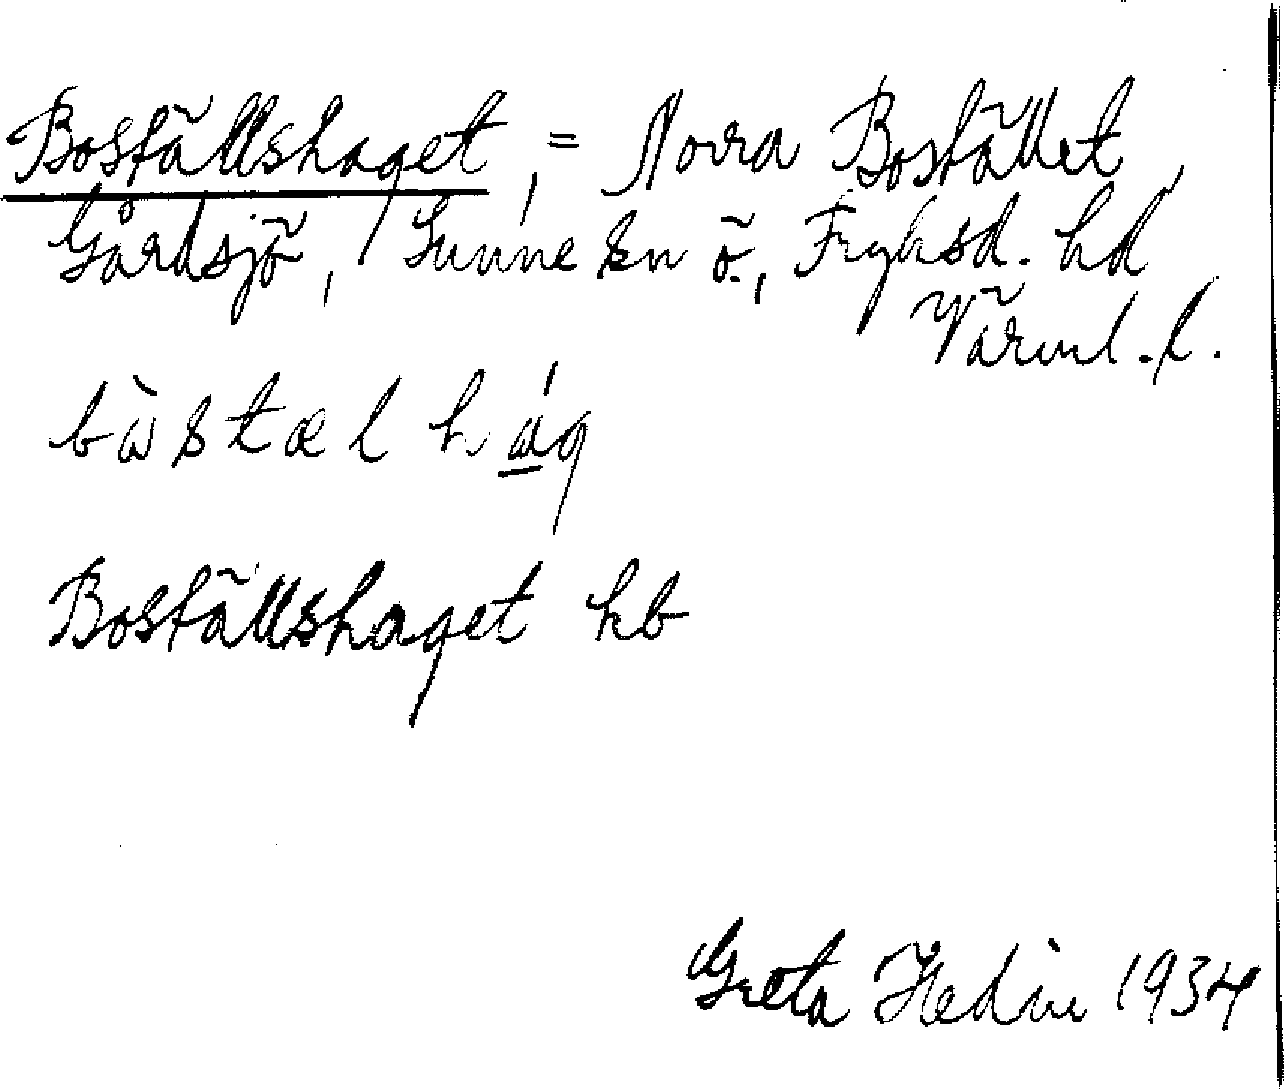 Boställshaget, = Norra Bostället,
Gårdsjö, Sunne sn ö., Fryksd. hd
Värml. l.
bòstæl hág
Boställshaget hb
Greta Hedin 1934